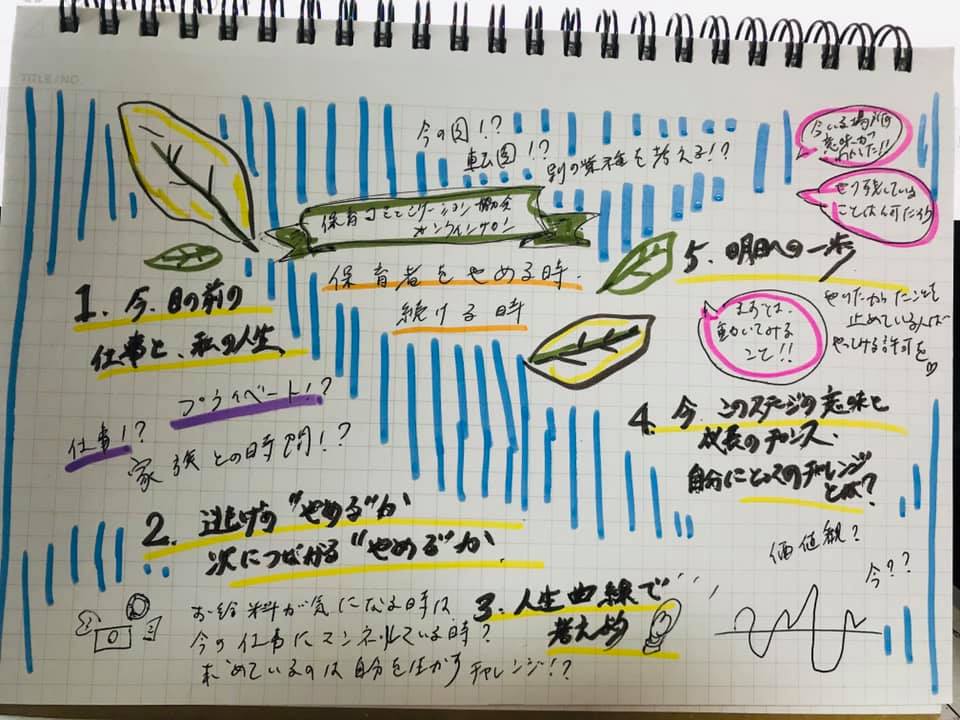 TITLE/NO.
今の園!?
転園!?
別の業種を考える!?
保育コミュニケーション協会
オンラインサロン
保育者をやめる時、
続ける時
1. 今、目の前の
仕事と、私の人生
プライベート!?
仕事!?
家族との時間!?
2. 逃げの"やめる"か
次につながる"やめる"か
お給料が気になる時は
今の仕事にマンネリしている時?
求めているのは自分を生かすチャレンジ!?
3. 人生曲線で
考える
4. 今、このステージの意味と
成長のチャンス、
自分にとってのチャレンジ
とは?
価値観?
今??
5. 明日への一歩
今いる場所の
意味が
わかった!!
やり残している
ことは何だろう
まずは、
動いてみる
こと!!
やりたかったことを
止めている人は
やっける許可を♡